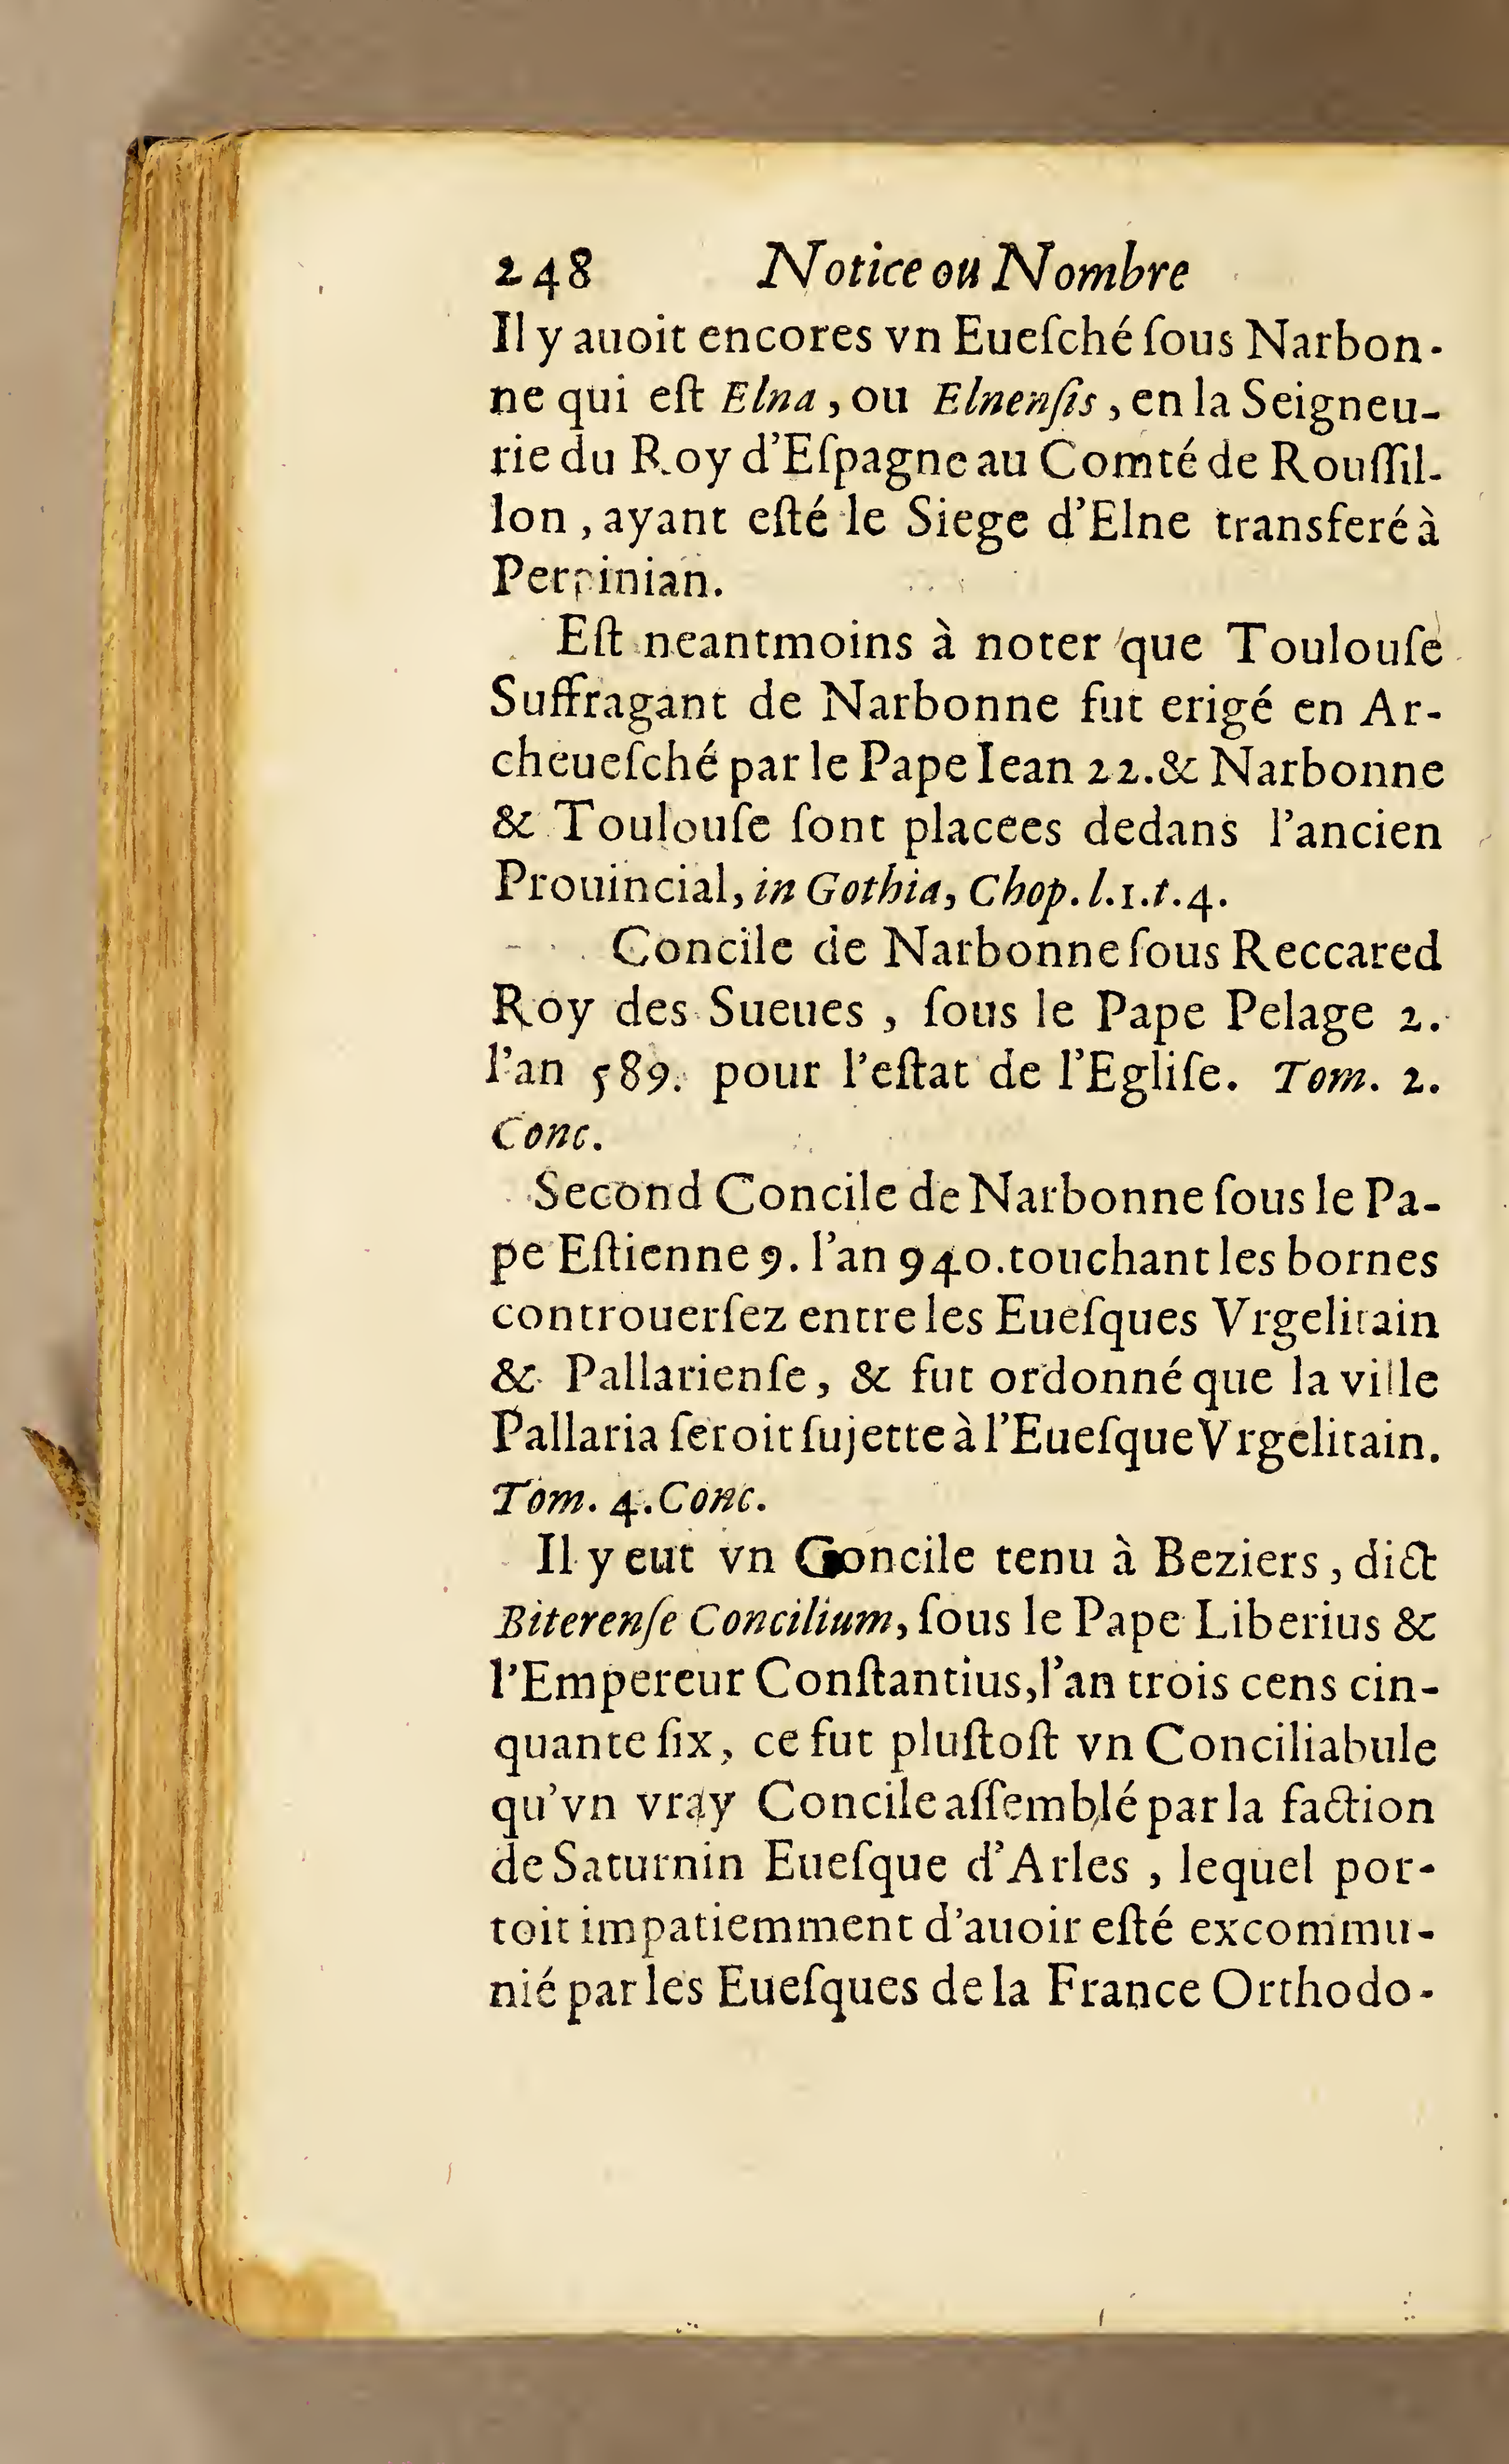 248 Notice ou Nombre
Il y auoit encores vn Eueſché ſous Narbon-
ne qui eſt Elna, ou Elnenſis, en la Seigneu-
rie du Roy d'Eſpagne au Comté de Rouſſil-
lon, ayant eſté le Siege d'Elne transferé à
Perpinian.
Eſt neantmoins à noter que Toulouſe
Suffragant de Narbonne fut erigé en Ar-
cheueſché par le Pape Iean 22. & Narbonne
& Toulouſe ſont placees dedans l'ancien
Prouincial, in Gothia, Chop. l.1.t.4.
Concile de Narbonne ſous Reccared
Roy des Sueues, ſous le Pape Pelage 2.
l'an 589. pour l'eſtat de l'Egliſe. Tom. 2.
Conc.
Second Concile de Narbonne ſous le Pa-
pe Eſtienne 9. l'an 940. touchant les bornes
controuerſez entre les Eueſques Vrgelitain
& Pallarienſe, & fut ordonné que la ville
Pallaria ſeroit ſujette à l'Eueſque Vrgelitain.
Tom. 4. Conc.
Il y eut vn Concile tenu à Beziers, dict
Biterenſe Concilium, ſous le Pape Liberius &
l'Empereur Conſtantius, l'an trois cens cin-
quante ſix, ce fut pluſtoſt vn Conciliabule
qu'vn vray Concile aſſemblé par la faction
de Saturnin Eueſque d'Arles, lequel por-
toit impatiemment d'auoir eſté excommu-
nié par les Eueſques de la France Orthodo-